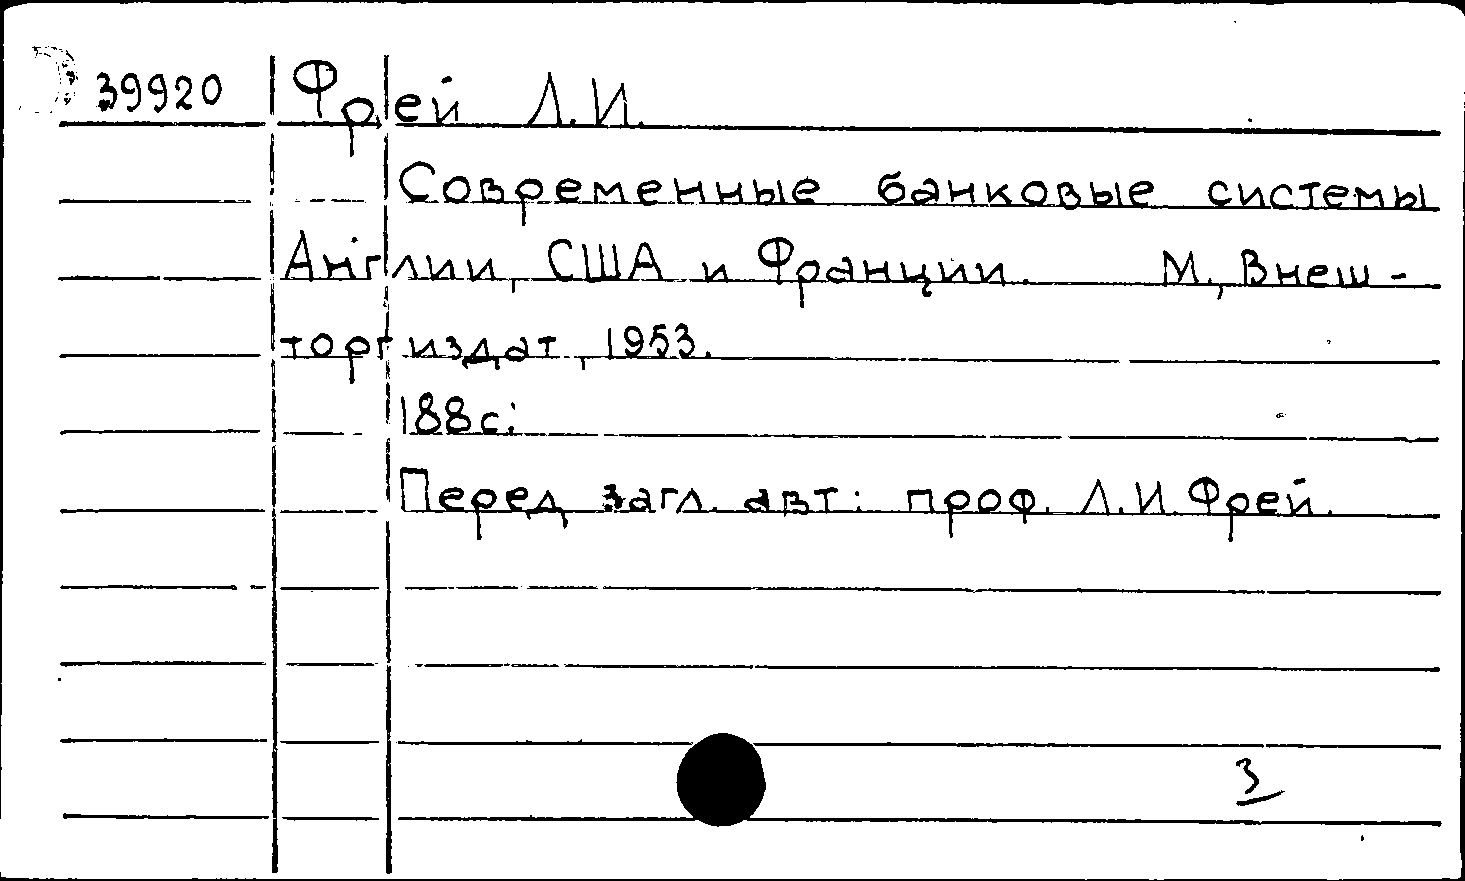 39920 Фрей Л.И.
Современные банковые системы
Англии, США и Франции. М., Внеш-
торгиздат, 1953.
188с.
Перед загл. авт: проф. Л.И. Фрей.
3